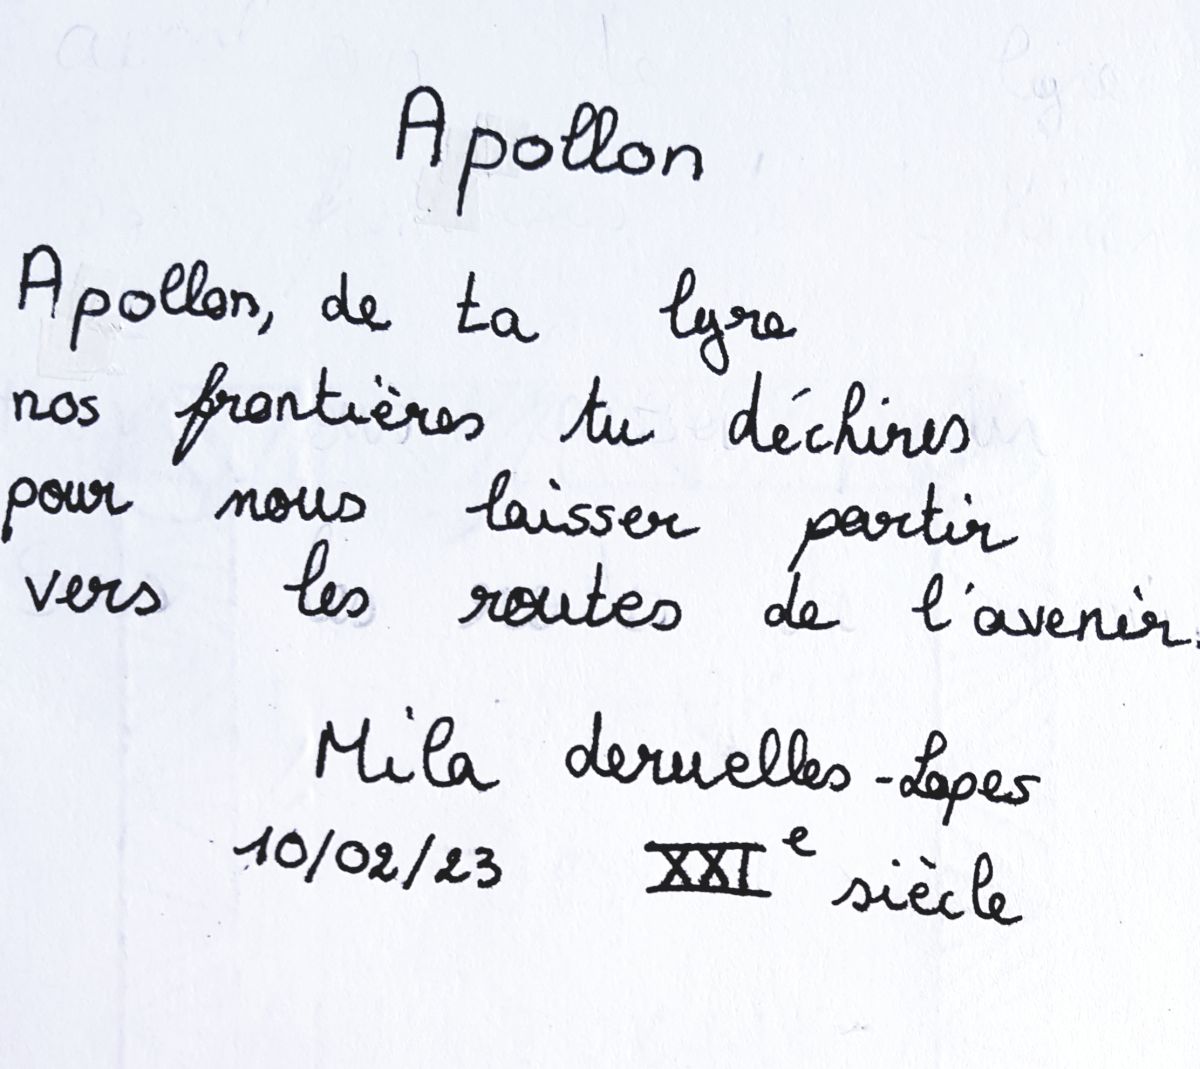 Apollon
Apollon, de ta lyre
nos frontières tu déchires
pour nous laisser partir
vers les routes de l'avenir.
Mila deruelles-Lopes
10/02/23 XXIe siècle